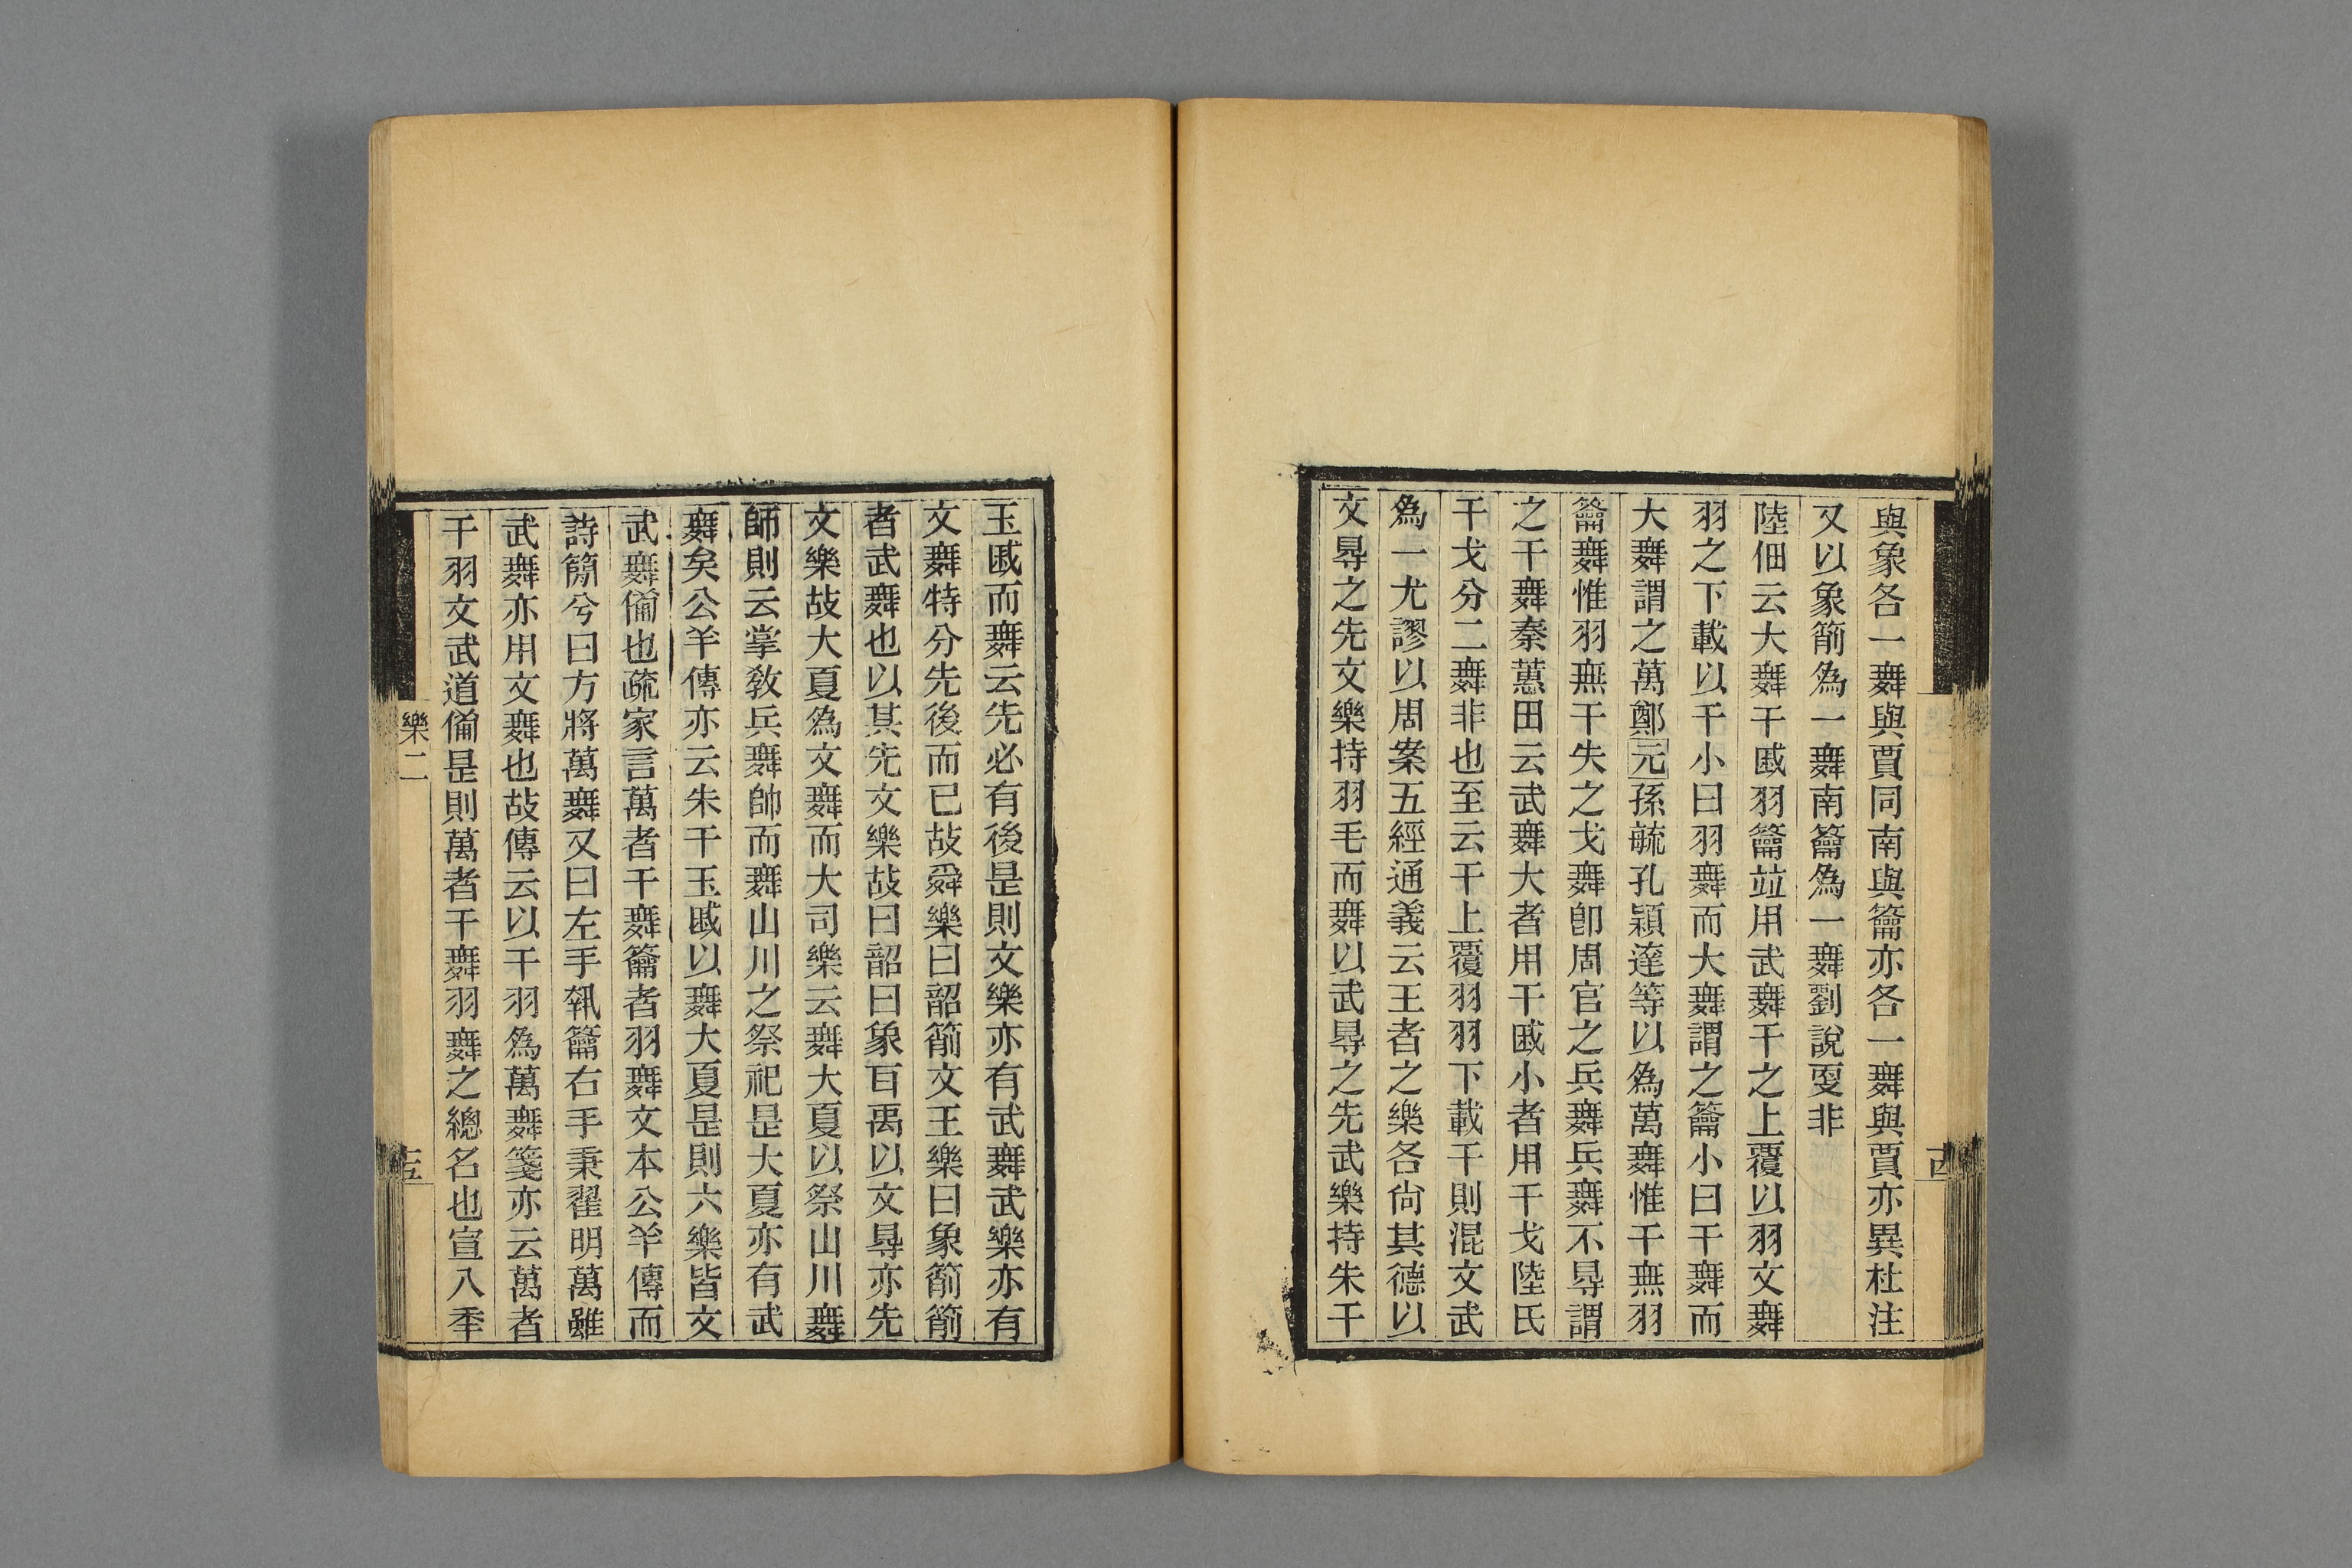 與象各一舞與賈同南與籥亦各一舞與賈亦異杜注
又以象箾為一舞南籥為一舞劉說㪅非
陸佃云大舞干戚羽籥竝用武舞干之上覆以羽文舞
羽之下載以干小曰羽舞而大舞謂之籥小曰干舞而
大舞謂之萬鄭元孫毓孔穎達等以為萬舞惟干無羽
籥舞惟羽無干失之戈舞卽周官之兵舞兵舞不㝵謂
之干舞秦蕙田云武舞大者用干戚小者用干戈陸氏
干戈分二舞非也至云干上覆羽羽下載干則混文武
為一尤謬以周案五經通義云王者之樂各尙其德以
文㝵之先文樂持羽毛而舞以武㝵之先武樂持朱干
玉戚而舞云先必有後是則文樂亦有武舞武樂亦有
文舞特分先後而已故舜樂曰韶箾文王樂曰象箾箾
者武舞也以其先文樂故曰韶曰象𦣻禹以文㝵亦先
文樂故大夏為文舞而大司樂云舞大夏以祭山川舞
師則云掌敎兵舞帥而舞山川之祭祀是大夏亦有武
舞矣公羊傳亦云朱干玉戚以舞大夏是則六樂皆文
武舞僃也疏家言萬者干舞籥者羽舞文本公羊傳而
詩簡兮曰方將萬舞又曰左手執籥右手秉翟明萬雖
武舞亦用文舞也故傳云以干羽為萬舞箋亦云萬者
干羽文武道僃是則萬者干舞羽舞之總名也宣八秊
樂二